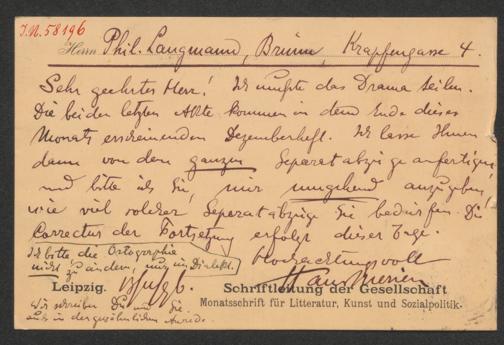 I.N. 58196
Herrn Phil. Langmann, Brünn, Krapfengasse 4.
Sehr geehrter Herr! Ich mußte das Drama teilen.
Die beiden letzten Akte kommen in dem Ende dieses
Monats erscheinenden Dezemberheft. Ich lasse Ihnen
dann von dem ganzen Separatabzüge anfertigen,
und bitte ich Sie, mir umgehend anzugeben,
wie viel solcher Separatabzüge Sie bedürfen. Die
Correctur der Fortsetzung erfolgt dieser Tage.
Ich bitte die Ortographie
nicht zu ändern, nur im Dialekt.
Hochachtungsvoll
Hans Merian
Leipzig.
Schriftleitung der Gesellschaft
Monatsschrift für Litteratur, Kunst und Sozialpolitik.
Wir schreiben Du und Sie
auch in der gewöhnlichen Anrede.